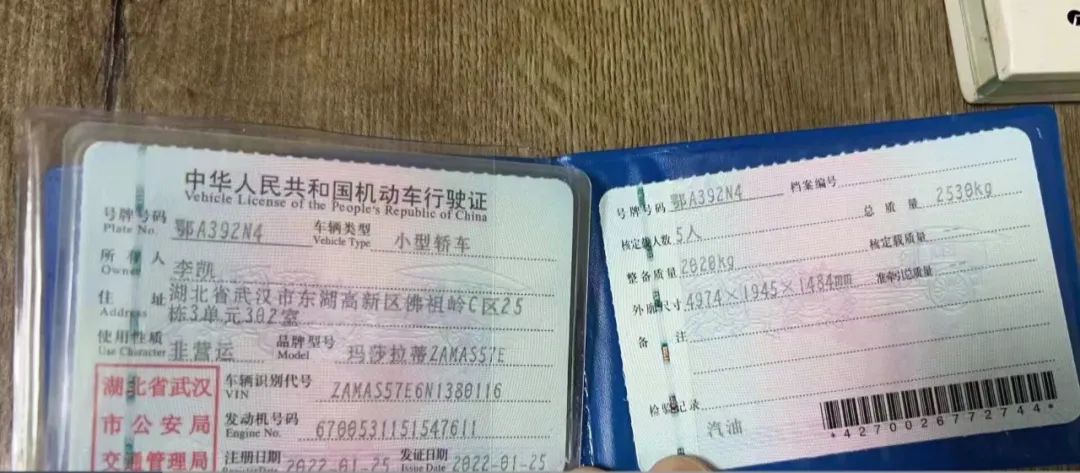 中华人民共和国机动车行驶证
Vehicle License of the People's Republic of China
号牌号码 鄂A392N4 车辆类型 小型轿车
Plate No. Vehicle Type
所有人 李凯
Owner
住址 湖北省武汉市东湖高新区佛祖岭C区25
Address 栋3单元302室
使用性质 非营运 品牌型号 玛莎拉蒂ZAMAS57E
Use Character Model
湖北省武汉
市公安局
交通管理局
车辆识别代号 ZAMAS57E6N1380116
VIN
发动机号码 6700531151547611
Engine No.
注册日期 2022-01-25 发证日期 2022-01-25
Register Date Issue Date
号牌号码 鄂A392N4 档案编号
核定载人数 5人 总质量 2530kg
整备质量 2020kg 核定载质量
外廓尺寸 4974×1945×1484mm 准牵引总质量
备注
检验记录
汽油
*4270026772744*